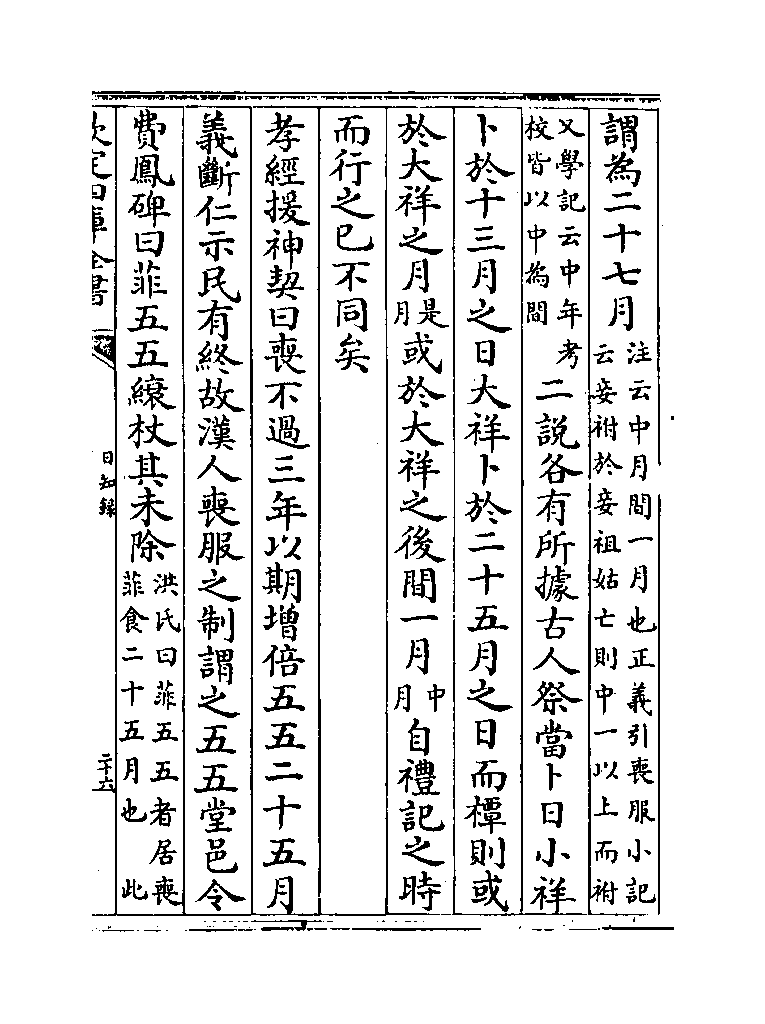 謂為二十七月注云中月間一月也正義引喪服小記云妾祔於妾祖姑亡則中一以上而祔
又學記云中年考校皆以中為間二說各有所據古人祭當卜日小祥
卜於十三月之日大祥卜於二十五月之日而禫則或
於大祥之月是月或於大祥之後間一月中月自禮記之時
而行之已不同矣
孝經援神契曰喪不過三年以期增倍五五二十五月
義斷仁示民有終故漢人喪服之制謂之五五堂邑令
費鳳碑曰菲五五縗杖其未除洪氏曰菲五五者居喪菲食二十五月也此
欽定四庫全書
日知錄
二十六